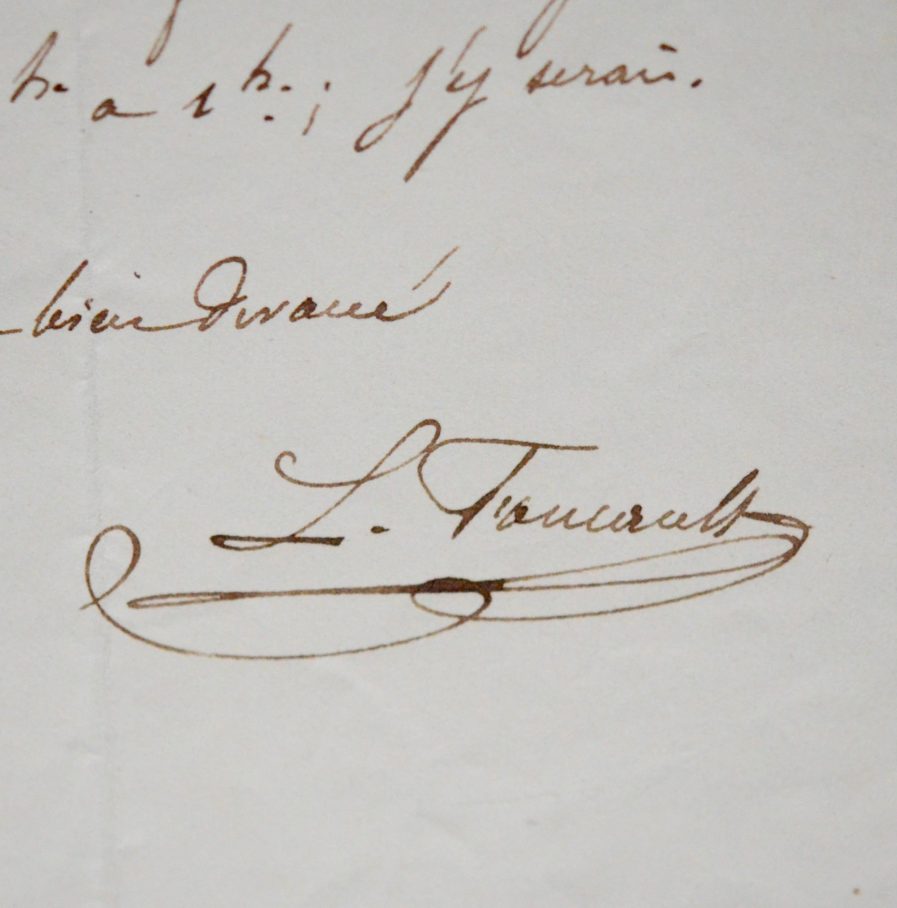 h. a 1h. ; j'y serais.
bien dévoué
L. Foucault